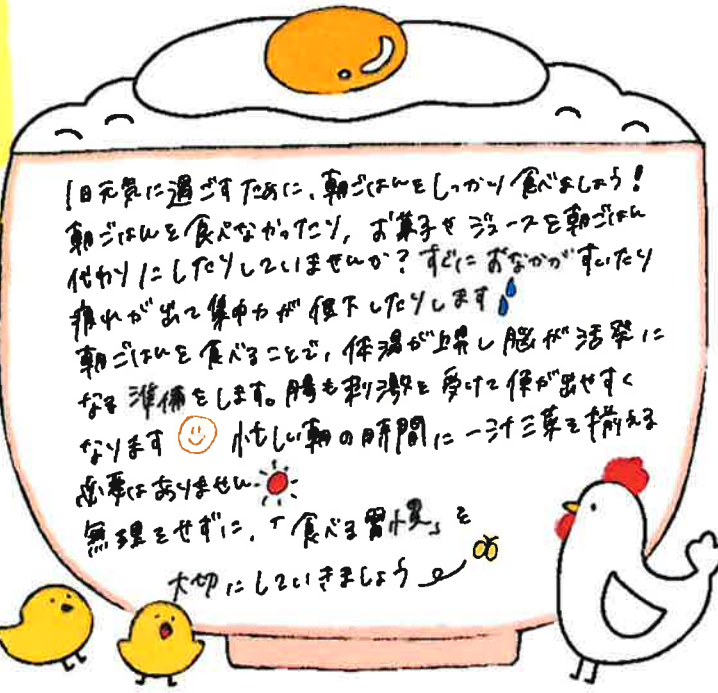 1日元気に過ごすために、朝ごはんをしっかり食べましょう!
朝ごはんを食べなかったり、お菓子やジュースを朝ごはん
代わりにしたりしていませんか?すぐにおなかがすいたり
疲れが出て集中力が低下したりします
朝ごはんを食べることで、体温が上昇し脳が活発に
なる準備をします。腸も刺激を受けて便が出やすく
なります 忙しい朝の時間に一汁三菜を揃える
必要はありません
無理をせずに、「食べる習慣」を
大切にしていきましょう